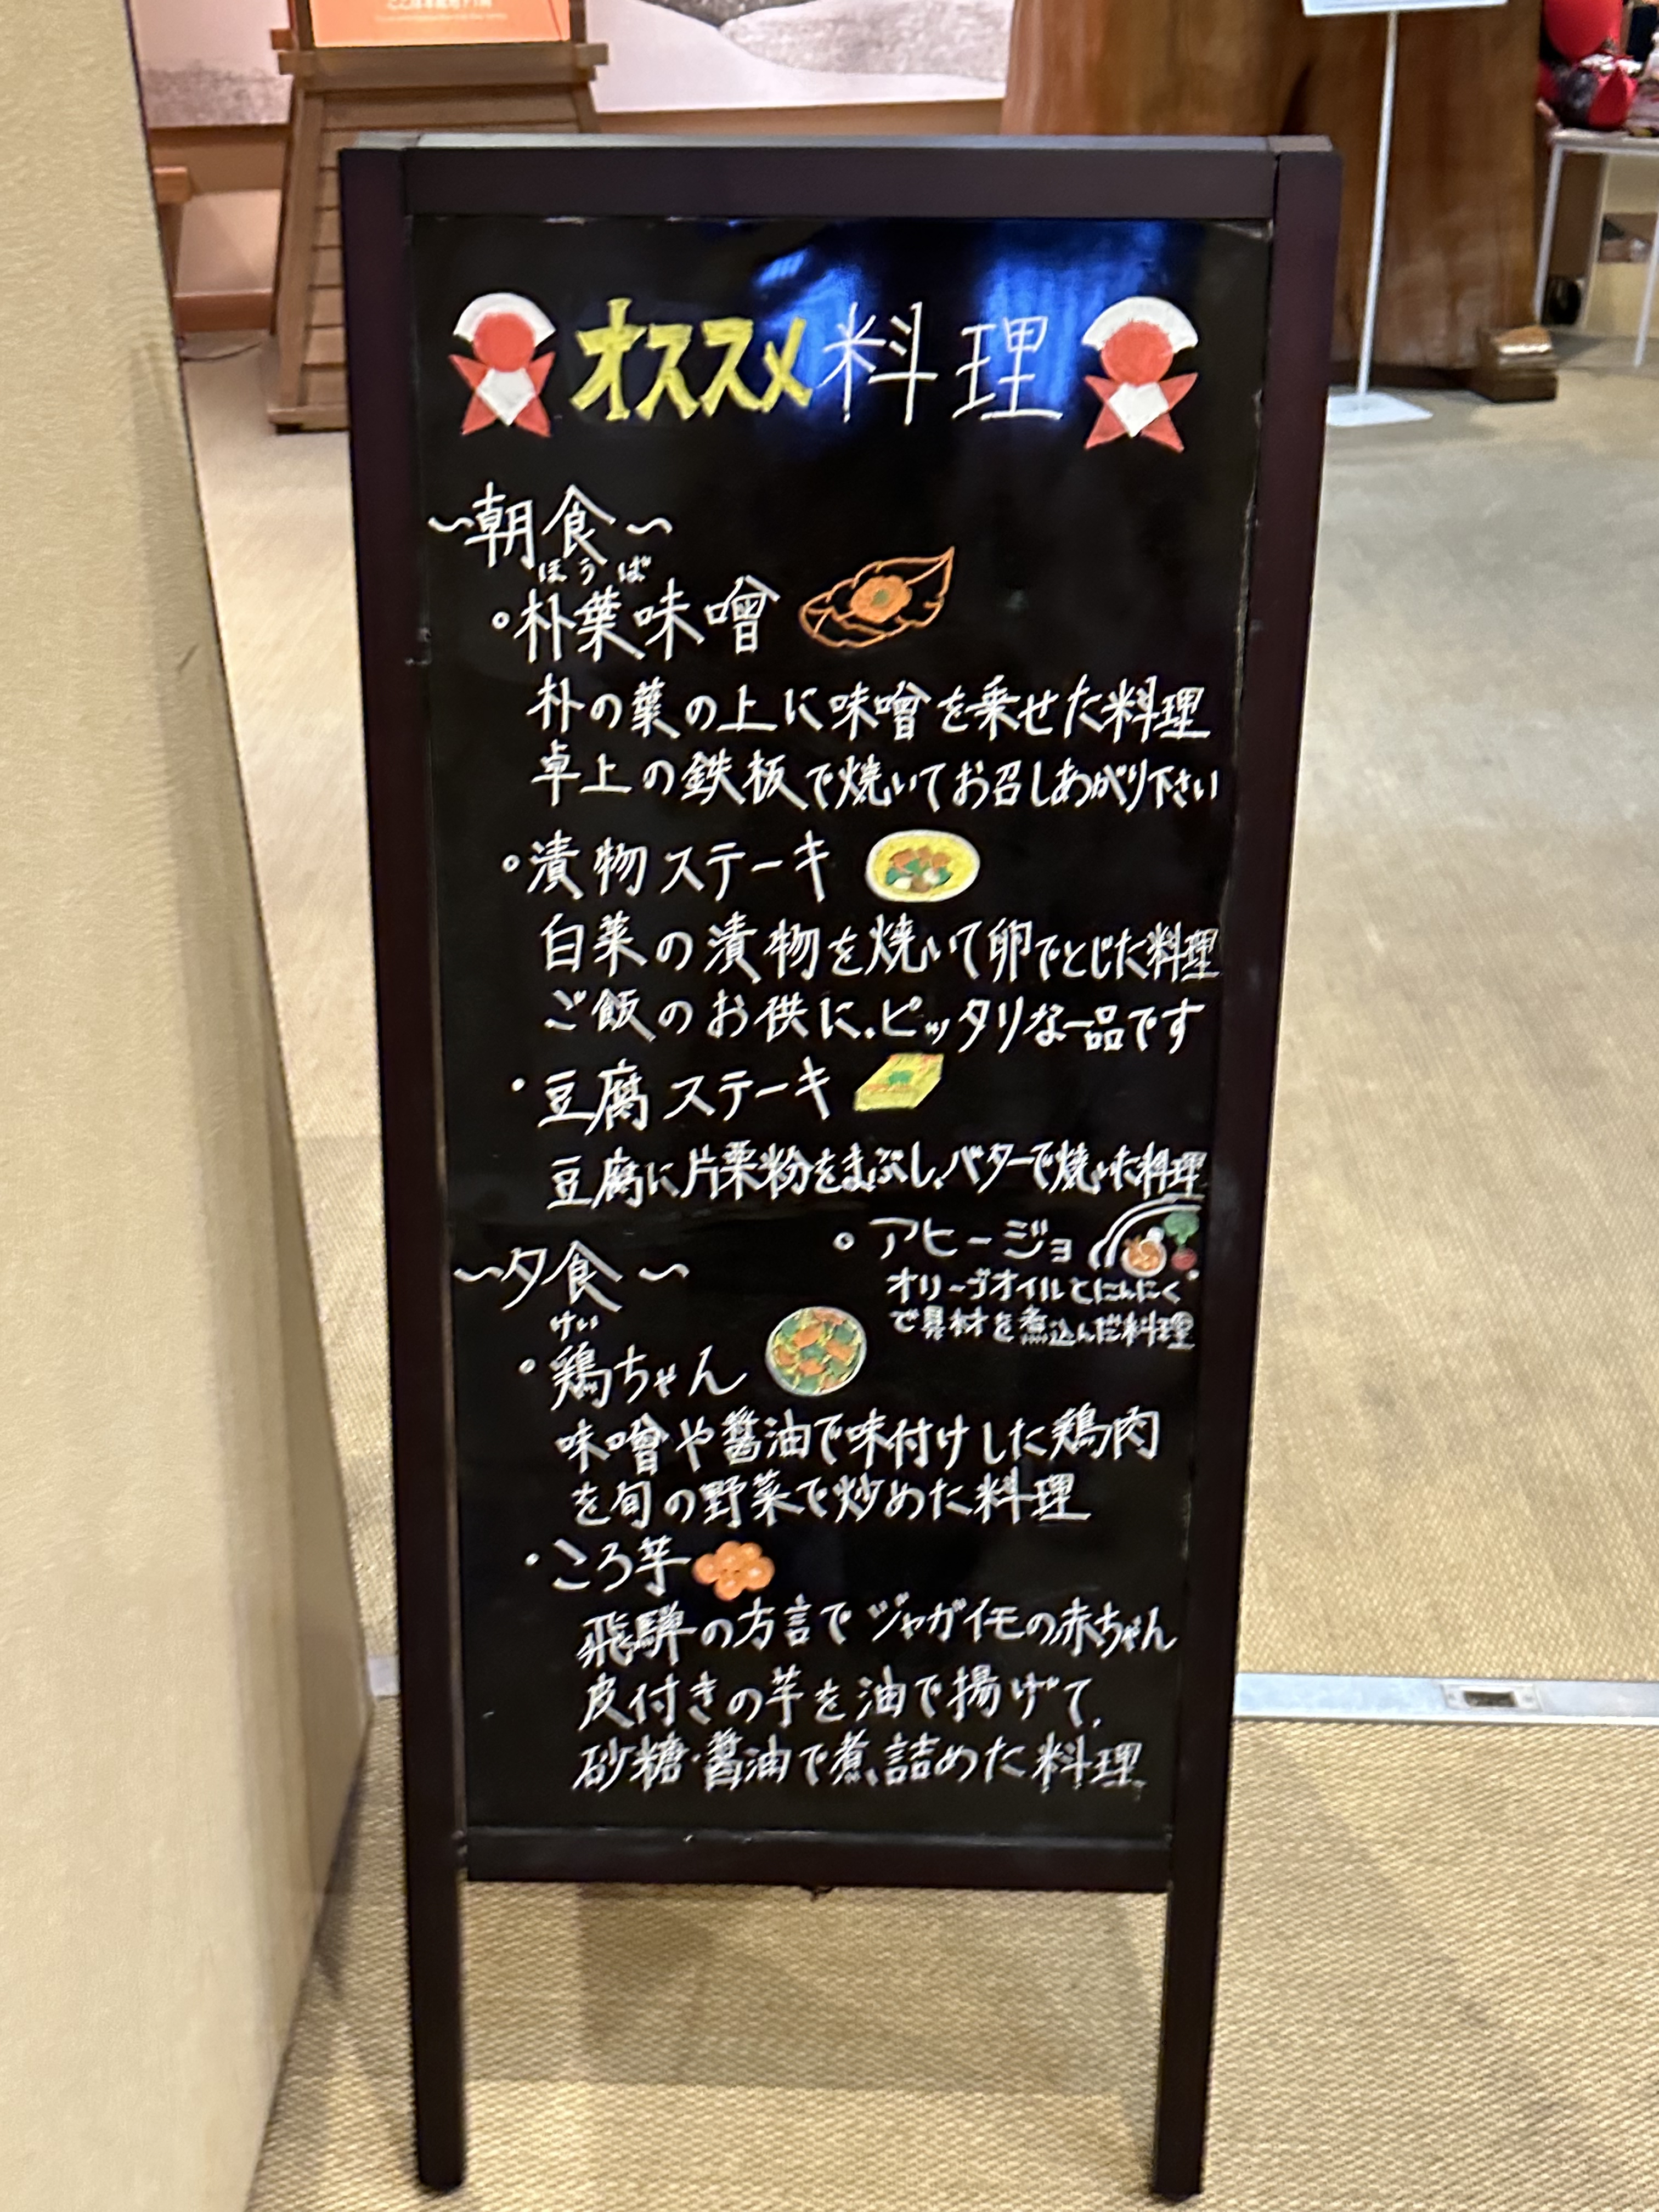 オススメ料理
〜朝食〜
ほうば
・朴葉味噌
朴の葉の上に味噌を乗せた料理
卓上の鉄板で焼いてお召しあがり下さい
・漬物ステーキ
白菜の漬物を焼いて卵でとじた料理
ご飯のお供に、ピッタリな一品です
・豆腐ステーキ
豆腐に片栗粉をまぶし、バターで焼いた料理
〜夕食〜
けい
・鶏ちゃん
味噌や醤油で味付けした鶏肉
を旬の野菜で炒めた料理
・アヒージョ
オリーブオイルとにんにく
で具材を煮込んだ料理
・ころ芋
飛騨の方言でジャガイモの赤ちゃん
皮付きの芋を油で揚げて、
砂糖・醤油で煮詰めた料理